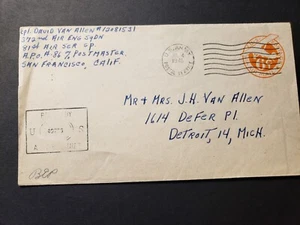 Cpl. David Van Allen #12081531
372nd Air Eng Sqdn
81st Air Ser Gp
A.P.O. #86 % Postmaster
San Francisco, Calif.
Mr + Mrs. J.H. Van Allen
1614 Defer Pl.
Detroit, 14, Mich.